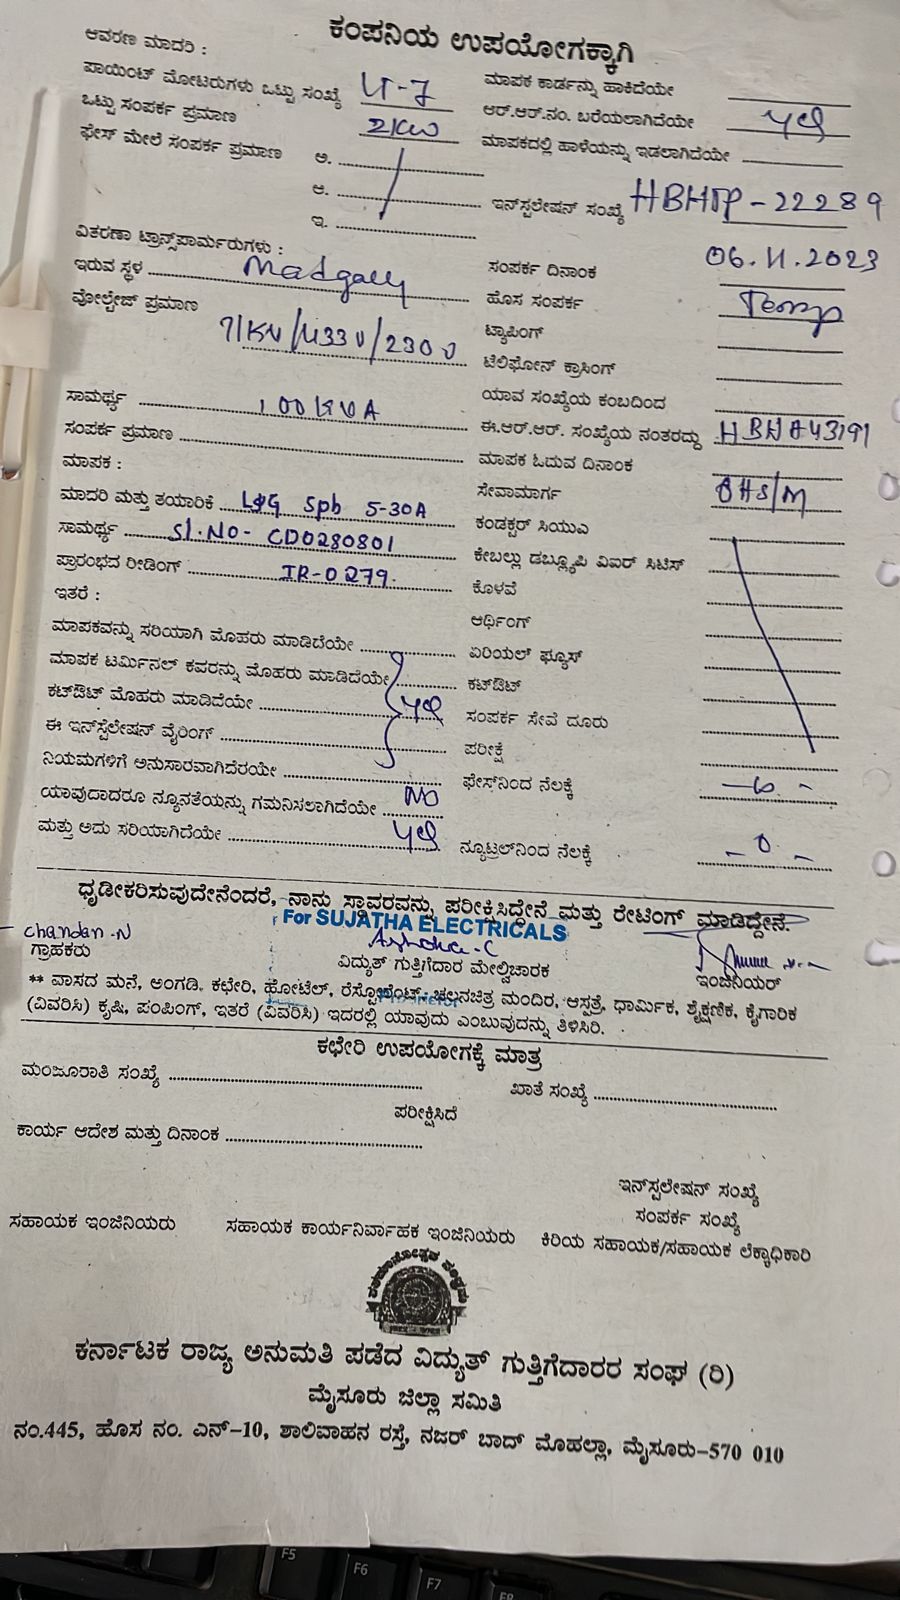 ಕಂಪನಿಯ ಉಪಯೋಗಕ್ಕಾಗಿ
ಆವರಣ ಮಾದರಿ :
ಪಾಯಿಂಟ್ ಮೋಟರುಗಳು ಒಟ್ಟು ಸಂಖ್ಯೆ LT-7 ಮಾಪಕ ಕಾರ್ಡನ್ನು ಹಾಕಿದೆಯೇ
ಒಟ್ಟು ಸಂಪರ್ಕ ಪ್ರಮಾಣ 2KW ಆರ್.ಆರ್.ನಂ. ಬರೆಯಲಾಗಿದೆಯೇ yes
ಫೇಸ್ ಮೇಲೆ ಸಂಪರ್ಕ ಪ್ರಮಾಣ ಅ. ಮಾಪಕದಲ್ಲಿ ಹಾಳೆಯನ್ನು ಇಡಲಾಗಿದೆಯೇ
ಆ. ಇನ್‌ಸ್ಟಲೇಷನ್ ಸಂಖ್ಯೆ HBHTP-22289
ಇ.
ವಿತರಣಾ ಟ್ರಾನ್ಸ್‌ಪಾರ್ಮರುಗಳು : ಸಂಪರ್ಕ ದಿನಾಂಕ 06.11.2023
ಇರುವ ಸ್ಥಳ Madgally ಹೊಸ ಸಂಪರ್ಕ Temp
ವೋಲ್ಟೇಜ್ ಪ್ರಮಾಣ /433V/230V ಟ್ಯಾಪಿಂಗ್
ಟೆಲಿಫೋನ್ ಕ್ರಾಸಿಂಗ್
ಸಾಮರ್ಥ್ಯ 100KVA ಯಾವ ಸಂಖ್ಯೆಯ ಕಂಬದಿಂದ
ಸಂಪರ್ಕ ಪ್ರಮಾಣ ಈ.ಆರ್.ಆರ್. ಸಂಖ್ಯೆಯ ನಂತರದ್ದು HBHA43191
ಮಾಪಕ : ಮಾಪಕ ಓದುವ ದಿನಾಂಕ
ಮಾದರಿ ಮತ್ತು ತಯಾರಿಕೆ L&G Spb 5-30A ಸೇವಾಮಾರ್ಗ OHS/M
ಸಾಮರ್ಥ್ಯ Sl.NO- CD0280801 ಕಂಡಕ್ಟರ್ ಸಿಯುಎ
ಪ್ರಾರಂಭದ ರೀಡಿಂಗ್ IR-0279. ಕೇಬಲ್ಲು ಡಬ್ಲ್ಯೂಪಿ ವಿಐರ್ ಸಿಟಿಸ್
ಇತರೆ : ಕೊಳವೆ
ಆರ್ಥಿಂಗ್
ಮಾಪಕವನ್ನು ಸರಿಯಾಗಿ ಮೊಹರು ಮಾಡಿದೆಯೇ ಏರಿಯಲ್ ಫ್ಯೂಸ್
ಮಾಪಕ ಟರ್ಮಿನಲ್ ಕವರನ್ನು ಮೊಹರು ಮಾಡಿದೆಯೇ ಕಟ್‌ಔಟ್
ಕಟ್‌ಔಟ್ ಮೊಹರು ಮಾಡಿದೆಯೇ yes ಸಂಪರ್ಕ ಸೇವೆ ದೂರು
ಈ ಇನ್‌ಸ್ಟೆಲೇಷನ್ ವೈರಿಂಗ್ ಪರೀಕ್ಷೆ
ನಿಯಮಗಳಿಗೆ ಅನುಸಾರವಾಗಿದೆರಯೇ ಫೇಸ್‌ನಿಂದ ನೆಲಕ್ಕೆ
ಯಾವುದಾದರೂ ನ್ಯೂನತೆಯನ್ನು ಗಮನಿಸಲಾಗಿದೆಯೇ NO
ಮತ್ತು ಅದು ಸರಿಯಾಗಿದೆಯೇ yes ನ್ಯೂಟ್ರಲ್‌ನಿಂದ ನೆಲಕ್ಕೆ - 0 -
ಧೃಢೀಕರಿಸುವುದೇನೆಂದರೆ, ನಾನು ಸ್ಥಾವರವನ್ನು ಪರೀಕ್ಷಿಸಿದ್ದೇನೆ ಮತ್ತು ರೇಟಿಂಗ್ ಮಾಡಿದ್ದೇನೆ.
For SUJATHA ELECTRICALS
Chandan.N Ashoka.C
ಗ್ರಾಹಕರು ವಿದ್ಯುತ್ ಗುತ್ತಿಗೆದಾರ ಮೇಲ್ವಿಚಾರಕ ಇಂಜಿನಿಯರ್
** ವಾಸದ ಮನೆ, ಅಂಗಡಿ. ಕಛೇರಿ, ಹೋಟೆಲ್, ರೆಸ್ಟೋರೆಂಟ್, ಚಲನಚಿತ್ರ ಮಂದಿರ, ಆಸ್ಪತ್ರೆ, ಧಾರ್ಮಿಕ, ಶೈಕ್ಷಣಿಕ, ಕೈಗಾರಿಕ
(ವಿವರಿಸಿ) ಕೃಷಿ, ಪಂಪಿಂಗ್, ಇತರೆ (ವಿವರಿಸಿ) ಇದರಲ್ಲಿ ಯಾವುದು ಎಂಬುವುದನ್ನು ತಿಳಿಸಿರಿ.
ಕಛೇರಿ ಉಪಯೋಗಕ್ಕೆ ಮಾತ್ರ
ಮಂಜೂರಾತಿ ಸಂಖ್ಯೆ ಖಾತೆ ಸಂಖ್ಯೆ
ಪರೀಕ್ಷಿಸಿದೆ
ಕಾರ್ಯ ಆದೇಶ ಮತ್ತು ದಿನಾಂಕ
ಇನ್‌ಸ್ಟಲೇಷನ್ ಸಂಖ್ಯೆ
ಸಂಪರ್ಕ ಸಂಖ್ಯೆ
ಸಹಾಯಕ ಇಂಜಿನಿಯರು ಸಹಾಯಕ ಕಾರ್ಯನಿರ್ವಾಹಕ ಇಂಜಿನಿಯರು ಕಿರಿಯ ಸಹಾಯಕ/ಸಹಾಯಕ ಲೆಕ್ಕಾಧಿಕಾರಿ
ಕರ್ನಾಟಕ ರಾಜ್ಯ ಅನುಮತಿ ಪಡೆದ ವಿದ್ಯುತ್ ಗುತ್ತಿಗೆದಾರರ ಸಂಘ (ರಿ)
ಮೈಸೂರು ಜಿಲ್ಲಾ ಸಮಿತಿ
ನಂ.445, ಹೊಸ ನಂ. ಎನ್-10, ಶಾಲಿವಾಹನ ರಸ್ತೆ, ನಜರ್ ಬಾದ್ ಮೊಹಲ್ಲಾ, ಮೈಸೂರು-570 010
F5
F6
F7
F8